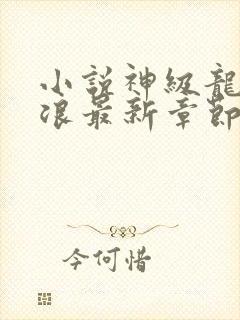 小說神級龍
浪最新章節
今何惜